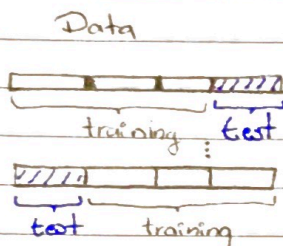 Data
training test
test training